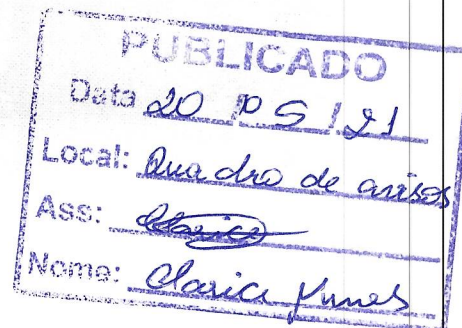 PUBLICADO
Data 20 / 05 / 21
Local: Quadro de avisos
Ass: Clarice
Nome: Clarice Nunes